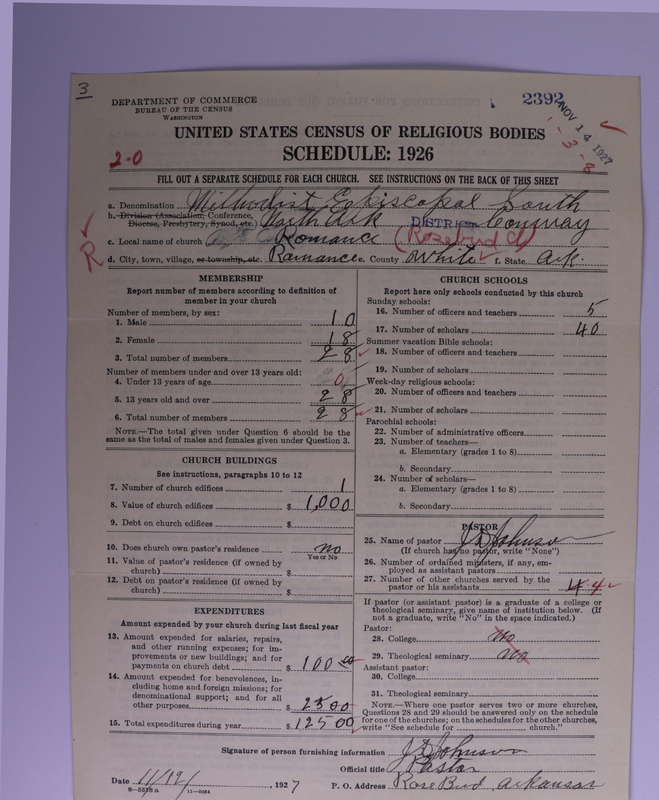 3
DEPARTMENT OF COMMERCE
BUREAU OF THE CENSUS
WASHINGTON
2392
NOV 14 1927
2-0
UNITED STATES CENSUS OF RELIGIOUS BODIES
SCHEDULE: 1926
FILL OUT A SEPARATE SCHEDULE FOR EACH CHURCH. SEE INSTRUCTIONS ON THE BACK OF THIS SHEET
a. Denomination Methodist Episcopal South
b. Division (Association, Conference, Diocese, Presbytery, Synod, etc.) North Ark DISTRICT Conway
c. Local name of church Romance (Rosebud C)
R
d. City, town, village, or township, etc. Romance e. County White f. State Ark.
MEMBERSHIP
Report number of members according to definition of
member in your church
Number of members, by sex:
1. Male 10
2. Female 18
3. Total number of members 28
Number of members under and over 13 years old:
4. Under 13 years of age 0
5. 13 years old and over 28
6. Total number of members 28
NOTE.—The total given under Question 6 should be the
same as the total of males and females given under Question 3.
CHURCH BUILDINGS
See instructions, paragraphs 10 to 12
7. Number of church edifices 1
8. Value of church edifices $ 1,000
9. Debt on church edifices $
10. Does church own pastor's residence no
Yes or No
11. Value of pastor's residence (if owned by
church) $
12. Debt on pastor's residence (if owned by
church) $
EXPENDITURES
Amount expended by your church during last fiscal year
13. Amount expended for salaries, repairs,
and other running expenses; for im-
provements or new buildings; and for
payments on church debt $ 100 00
14. Amount expended for benevolences,
including home and foreign missions; for
denominational support; and for all
other purposes $ 25 00
15. Total expenditures during year $ 125 00
CHURCH SCHOOLS
Report here only schools conducted by this church
Sunday schools:
16. Number of officers and teachers 5
17. Number of scholars 40
Summer vacation Bible schools:
18. Number of officers and teachers
19. Number of scholars
Week-day religious schools:
20. Number of officers and teachers
21. Number of scholars
Parochial schools:
22. Number of administrative officers
23. Number of teachers—
a. Elementary (grades 1 to 8)
b. Secondary
24. Number of scholars—
a. Elementary (grades 1 to 8)
b. Secondary
PASTOR
25. Name of pastor J D Johnson
(If church has no pastor, write "None")
26. Number of ordained ministers, if any, em-
ployed as assistant pastors
27. Number of other churches served by the
pastor or his assistants 4 4
If pastor (or assistant pastor) is a graduate of a college or
theological seminary, give name of institution below. (If
not a graduate, write "No" in the space indicated.)
Pastor:
28. College No
29. Theological seminary No
Assistant pastor:
30. College
31. Theological seminary
NOTE.—Where one pastor serves two or more churches,
Questions 28 and 29 should be answered only on the schedule
for one of the churches; on the schedules for the other churches,
write "See schedule for church."
Signature of person furnishing information J D Johnson
Official title Pastor
Date 11/12/, 1927 P. O. Address Rose Bud, Arkansas